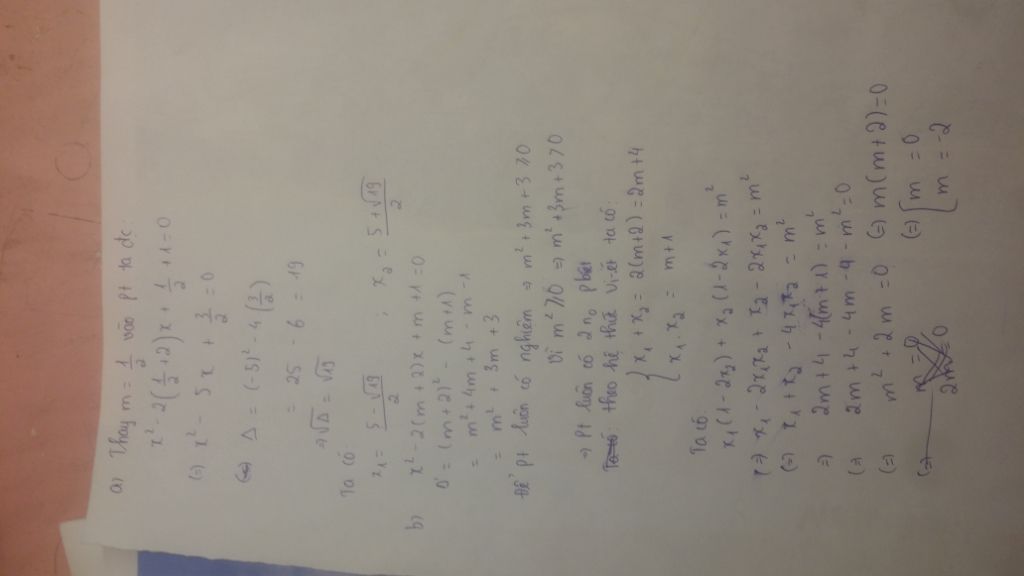 a) Thay m = 1/2 vào pt ta dc:
x² - 2(1/2 + 2)x + 1/2 + 1 = 0
(=) x² - 5x + 3/2 = 0
Δ = (-5)² - 4(3/2)
= 25 - 6 = 19
=> √Δ = √19
Ta có:
x₁ = (5 - √19)/2 ; x₂ = (5 + √19)/2
b) x² - 2(m + 2)x + m + 1 = 0
Δ' = (m + 2)² - (m + 1)
= m² + 4m + 4 - m - 1
= m² + 3m + 3
Để pt luôn có nghiệm => m² + 3m + 3 ≥ 0
Vì m² ≥ 0 => m² + 3m + 3 > 0
=> Pt luôn có 2 n₀ pbiệt
Ta có: theo hệ thức Viét ta có:
{ x₁ + x₂ = 2(m + 2) = 2m + 4
x₁ . x₂ = m + 1
Ta có
x₁(1 - 2x₂) + x₂(1 - 2x₁) = m²
(=) x₁ - 2x₁x₂ + x₂ - 2x₁x₂ = m²
(=) x₁ + x₂ - 4x₁x₂ = m²
=) 2m + 4 - 4(m + 1) = m²
(=) 2m + 4 - 4m - 4 - m² = 0
(=) m² + 2m = 0 (=) m(m + 2) = 0
(=) [ m = 0
m = -2